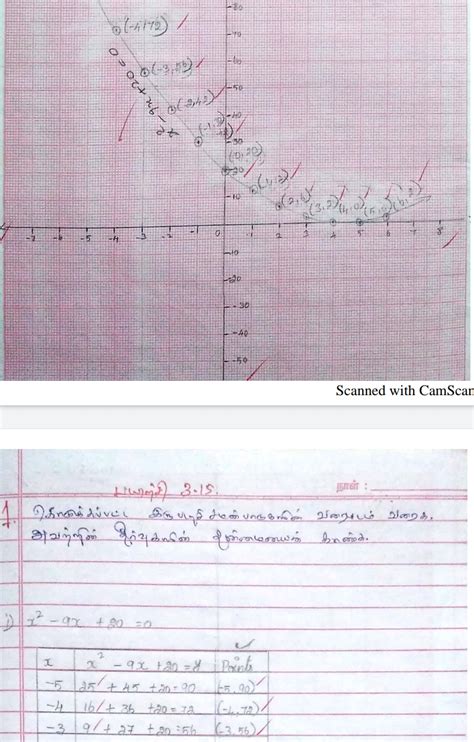 80
(-4,72)
70
(-3,56)
60
50
(-2,42)
x² - 9x + 20 = 0
40
30
(0,20)
20
(1,12)
10
(2,6) (3,2) (4,0) (5,0) (6,2)
-7 -6 -5 -4 -3 -2 -1 0 1 2 3 4 5 6 7 8
-10
-20
-30
-40
-50
Scanned with CamScan
பயிற்சி 3.15
நாள் :
1. கொடுக்கப்பட்ட இருபடி சமன்பாடுகளின் வரைபடம் வரைக.
அவற்றின் தீர்வுகளின் தன்மையைக் காண்க.
i) x² - 9x + 20 = 0
x x² - 9x + 20 = y Points
-5 25 + 45 + 20 = 90 (-5, 90)
-4 16 + 36 + 20 = 72 (-4, 72)
-3 9 + 27 + 20 = 56 (-3, 56)